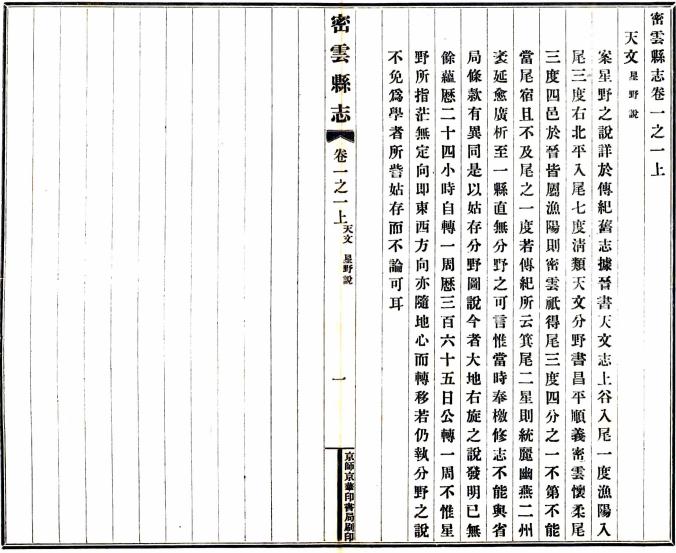 密雲縣志卷一之一上
天文 星野說
案星野之說詳於傳紀舊志據晉書天文志上谷入尾一度漁陽入
尾三度右北平入尾七度清類天文分野書昌平順義密雲懷柔尾
三度四邑於晉皆屬漁陽則密雲祇得尾三度四分之一不第不能
當尾宿且不及尾之一度若傳紀所云箕尾二星則統麗幽燕二州
袤延愈廣析至一縣直無分野之可言惟當時奉檄修志不能與省
局條款有異同是以姑存分野圖說今者大地右旋之說發明已無
餘蘊歷二十四小時自轉一周歷三百六十五日公轉一周不惟星
野所指茫無定向即東西方向亦隨地心而轉移若仍執分野之說
不免為學者所訾姑存而不論可耳
密雲縣志
卷一之一上
天文 星野說
一
京師京華印書局刷印